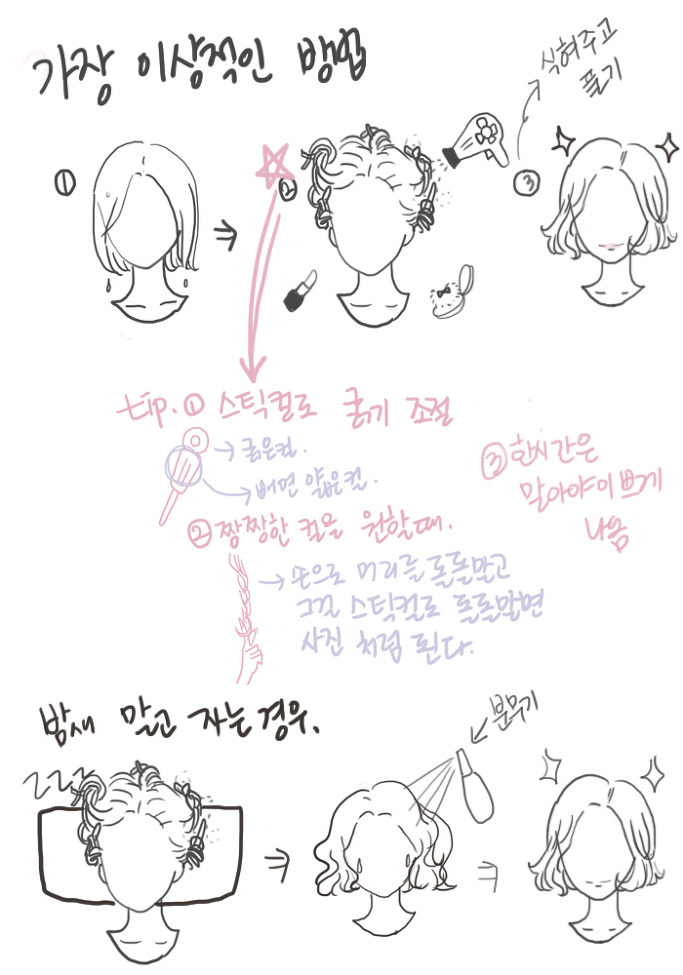 가장 이상적인 방법
식혀주고
풀기
①
②
③
tip. ① 스틱컬로 굵기 조절
굵은컬.
버면 얇은컬.
③ 한시간은
말아야 이쁘게
나옴
② 짱짱한 컬을 원할때.
손으로 머리를 돌돌말고
그걸 스틱컬로 돌돌말면
사진 처럼 된다.
밤새 말고 자는 경우.
분무기
zzz